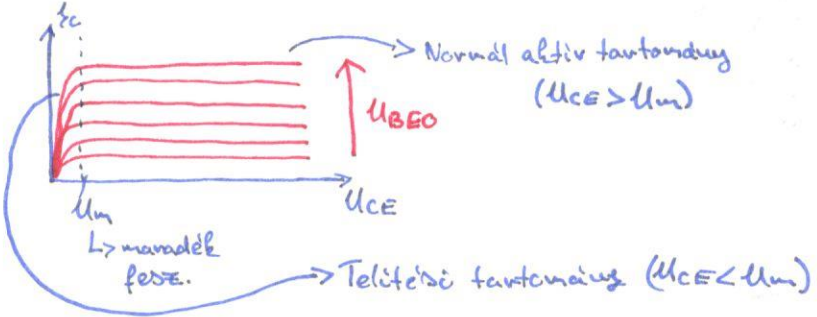 ic
Normál aktív tartomány
(UCE > Um)
UBE0
Um
UCE
↳ maradék
fesz.
Telítési tartomány (UCE < Um)